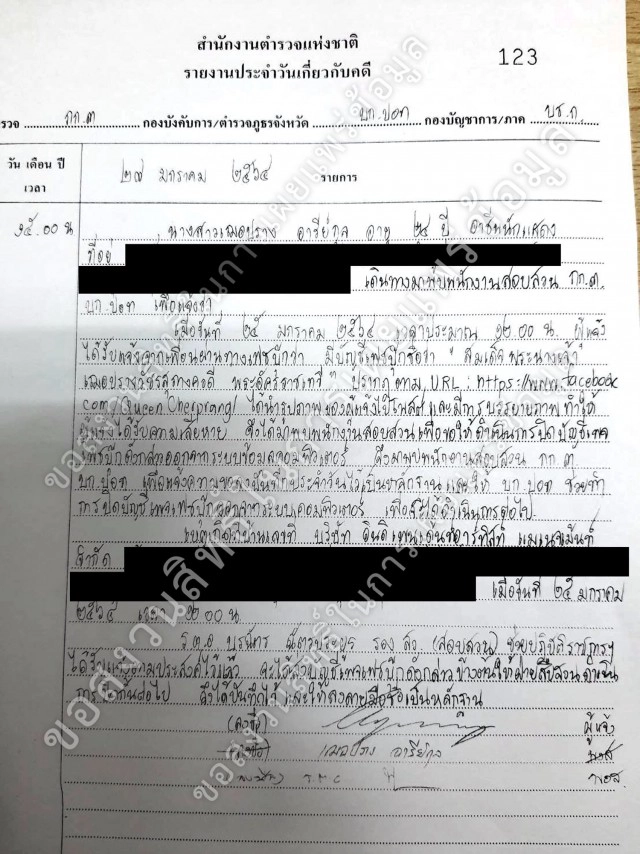 สำนักงานตำรวจแห่งชาติ
รายงานประจำวันเกี่ยวกับคดี
123
รวจ กก.๓ กองบังคับการ/ตำรวจภูธรจังหวัด บก.ปอท กองบัญชาการ/ภาค บช.ก.
วัน เดือน ปี
เวลา
๒๗ มกราคม ๒๕๖๔ รายการ
๑๕.๐๐ น นางสาวเฌอปราง อารีย์กุล อายุ ๒๔ ปี อาชีพนักแสดง
ที่อยู่
เดินทางมาพบพนักงานสอบสวน กก.๓
บก.ปอท เพื่อแจ้งว่า
เมื่อวันที่ ๒๕ มกราคม ๒๕๖๔ เวลาประมาณ ๑๒.๐๐ น. ผู้แจ้ง
ได้รับแจ้งจากเพื่อนผ่านทางเฟซบุ๊กว่า มีบัญชีเฟซบุ๊กชื่อว่า "สมเด็จพระนางเจ้า
เฌอปราง พระอัครราชเทวี" ปรากฏตาม URL : https://www.facebook
com/Queen Cherprang/ ได้นำรูปภาพของผู้แจ้งไปโพสต์ และมีการบรรยายภาพ ทำให้
ผู้แจ้งได้รับความเสียหาย จึงได้มาพบพนักงานสอบสวนเพื่อขอให้ดำเนินการปิดบัญชีเพจ
เฟซบุ๊กดังกล่าวออกจากระบบคอมพิวเตอร์ จึงมาพบพนักงานสอบสวน กก.๓
บก.ปอท เพื่อแจ้งความลงบันทึกประจำวันไว้เป็นหลักฐาน และให้ บก.ปอท ช่วยทำ
การปิดบัญชีเพจเฟซบุ๊กออกจากระบบคอมพิวเตอร์ เพื่อจะได้ดำเนินการต่อไป
เหตุเกิดที่บ้านเลขที่ บริษัท อินดิเพนเด้นท์อาร์ทิสท์ แมเนจเม้นท์
จำกัด
เมื่อวันที่ ๒๕ มกราคม
๒๕๖๔ เวลา ๑๒.๐๐ น.
ร.ต.อ รอง สว. (สอบสวน) ช่วยปฏิบัติราชการฯ
ได้รับแจ้งตามประสงค์ไว้แล้ว จะได้ส่งบัญชีเพจเฟซบุ๊กดังกล่าวข้างต้นให้ฝ่ายสืบสวนดำเนิน
การ ต่อไป จึงได้บันทึกไว้ และให้ลงลายมือชื่อเป็นหลักฐาน
(ลงชื่อ) ผู้แจ้ง
เฌอปราง อารีย์กุล
ร.ต.อ พงส
ขอสงวนสิทธิ์ในการเผยแพร่ข้อมูล
ขอสงวนสิทธิ์ในการเผยแพร่ข้อมูล